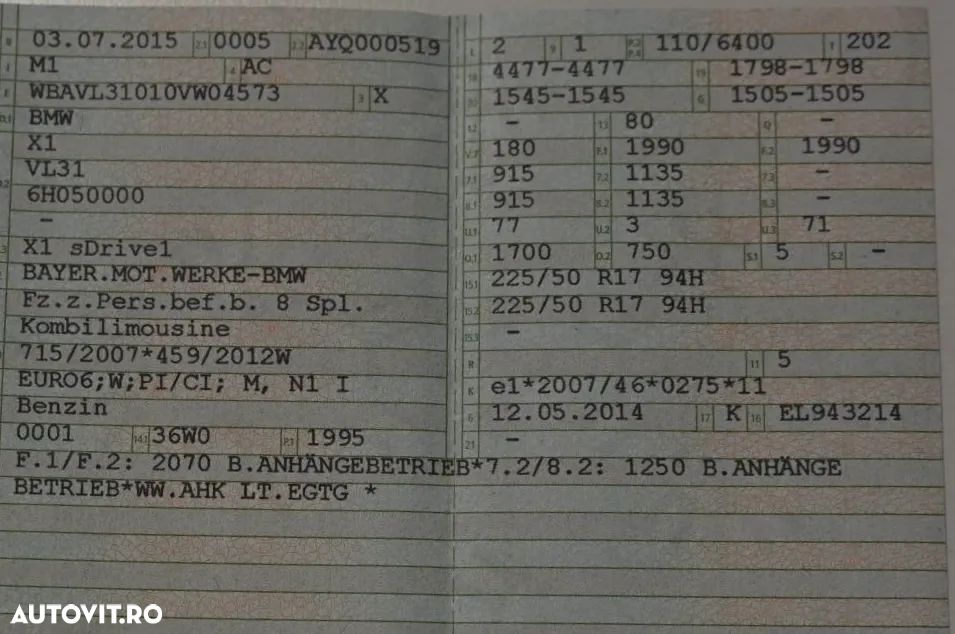 B 03.07.2015 2.1 0005 2.2 AYQ000519
J M1 4 AC
E WBAVL31010VW04573 3 X
D.1 BMW
X1
D.2 VL31
6H050000
–
3 X1 sDrive1
BAYER.MOT.WERKE-BMW
Fz.z.Pers.bef.b. 8 Spl.
Kombilimousine
715/2007*459/2012W
EURO6;W;PI/CI; M, N1 I
Benzin
0001 14.1 36W0 P.1 1995
L 2 9 1 P.2 P.4 110/6400 T 202
18 4477-4477 19 1798-1798
20 1545-1545 G 1505-1505
12 – 13 80 Q –
V.7 180 F.1 1990 F.2 1990
7.1 915 7.2 1135 7.3 –
8.1 915 8.2 1135 8.3 –
U.1 77 U.2 3 U.3 71
O.1 1700 O.2 750 S.1 5 S.2 –
15.1 225/50 R17 94H
15.2 225/50 R17 94H
15.3 –
R 11 5
K e1*2007/46*0275*11
6 12.05.2014 17 K 16 EL943214
21 –
F.1/F.2: 2070 B.ANHÄNGEBETRIEB*7.2/8.2: 1250 B.ANHÄNGE
BETRIEB*WW.AHK LT.EGTG *
AUTOVIT.RO